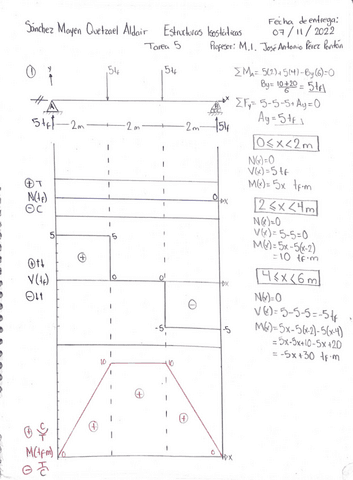 Sánchez Mayen Quetzael Aldair Estructuras Isostáticas
Fecha de entrega:
07/11/2022
Tarea 5 Profesor: M.I. José Antonio Pérez
① y 5tf 5tf
x
A B
5tf 2m 2m 2m 5tf
ΣMA = 5(2)+5(4)-By(6)=0
By= 10+20/6 = 5tf
ΣFy = 5-5-5+Ay=0
Ay=5tf
0≤x<2m
N(x)=0
V(x)=5tf
M(x)=5x tf·m
2≤x<4m
N(x)=0
V(x)=5-5=0
M(x)=5x-5(x-2)
= 10 tf·m
4≤x<6m
N(x)=0
V(x)=5-5-5=-5tf
M(x)=5x-5(x-2)-5(x-4)
=5x-5x+10-5x+20
=-5x+30 tf·m
⊕ T
N(tf) 0 x
⊖ C
5 5
⊕ ↑↓ ⊕
V(tf) 0 0 x
⊖ ↓↑ ⊖
-5 -5
10 10
⊕ ⊕ ⊕
⊕ C/T
M(tf·m) 0 0 x
⊖ T/C